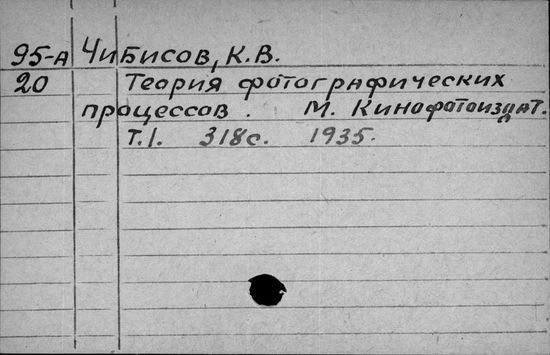 95-А Чибисов, К.В.
20 Теория фотографических
процессов. М. Кинофотоиздат.
Т.1. 318с. 1935.